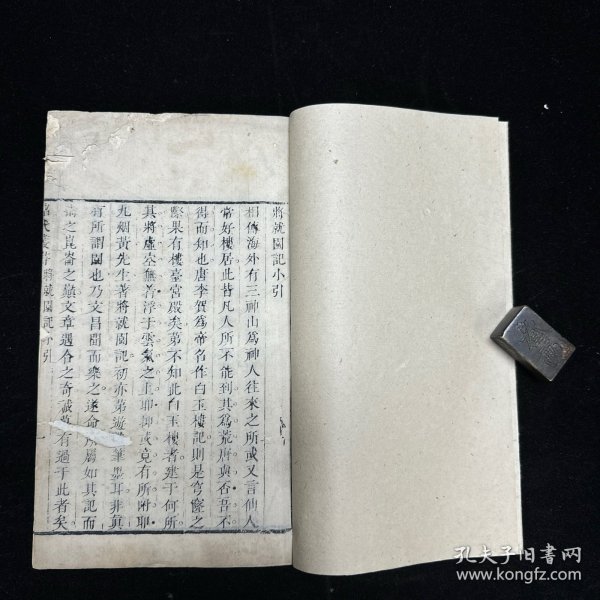 將就園記小引
相傳海外有三神山爲神人往來之所或又言仙人
常好樓居此皆凡人所不能到其爲荒唐與否吾不
得而知也唐李賀爲帝名作白玉樓記則是穹窿之
際果有樓臺宮殿矣第不知此白玉樓者建于何所
其將虛空無著浮于雲氣之上耶抑或竟有所附耶
九烟黃先生著將就園記初亦第遊筆墨耳非眞
有所謂園也乃文昌聞而樂之遂命所屬如其記而
搆之崑崙之巔文章遇合之奇誠莫有過于此者矣
昭代叢書將就園記小引
一
孔夫子旧書网
www.kongfz.com